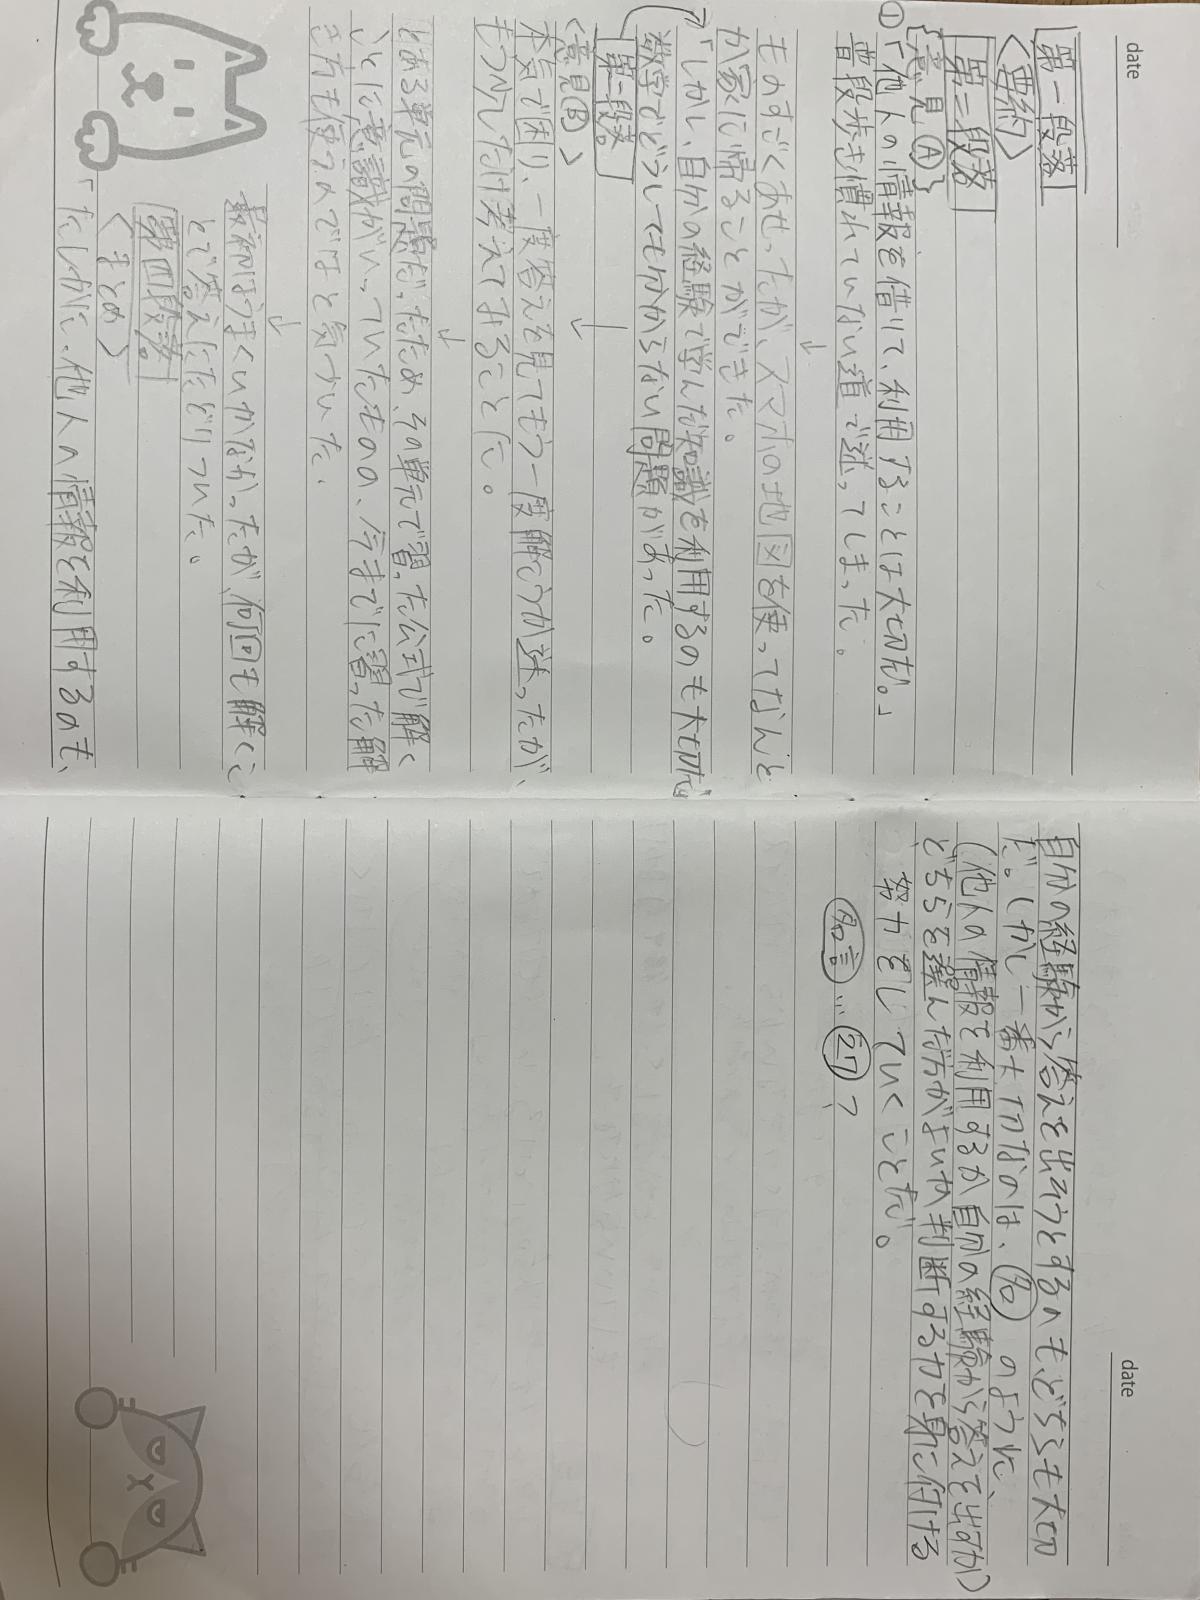 date
第一段落
〈要約〉
第二段落
{意見Ⓐ}
①「他人の情報を借りて、利用することは大切だ。」
普段歩き慣れていない道で迷ってしまった。
↓
ものすごくあせったが、スマホの地図を使ってなんと
か家に帰ることができた。
「しかし、自分の経験で学んだ知識を利用するのも大切だ」
数学でどうしても分からない問題があった。
第三段落
〈意見Ⓑ〉
↓
本気で困り、一度答えを見てもう一度解こうか迷ったが、
もう少しだけ考えてみることにした。
↓
とある単元の問題だったため、その単元で習った公式で解く
ことに意識がいっていたものの、今までに習った解
き方も使うんではと気づいた。
↓
最初はうまくいかなかったが、何回も解くこ
とで答えにたどりついた。
第四段落
〈まとめ〉
「たしかに、他人の情報を利用するのも、
date
自分の経験から答えを出そうとするのもどちらも大切
だ。しかし一番大切なのは、名のように、
(他人の情報を利用するか自分の経験から答えを出すか)
どちらを選んだ方がよいか判断する力を身に付ける
努力をしていくことだ。
名言…27?